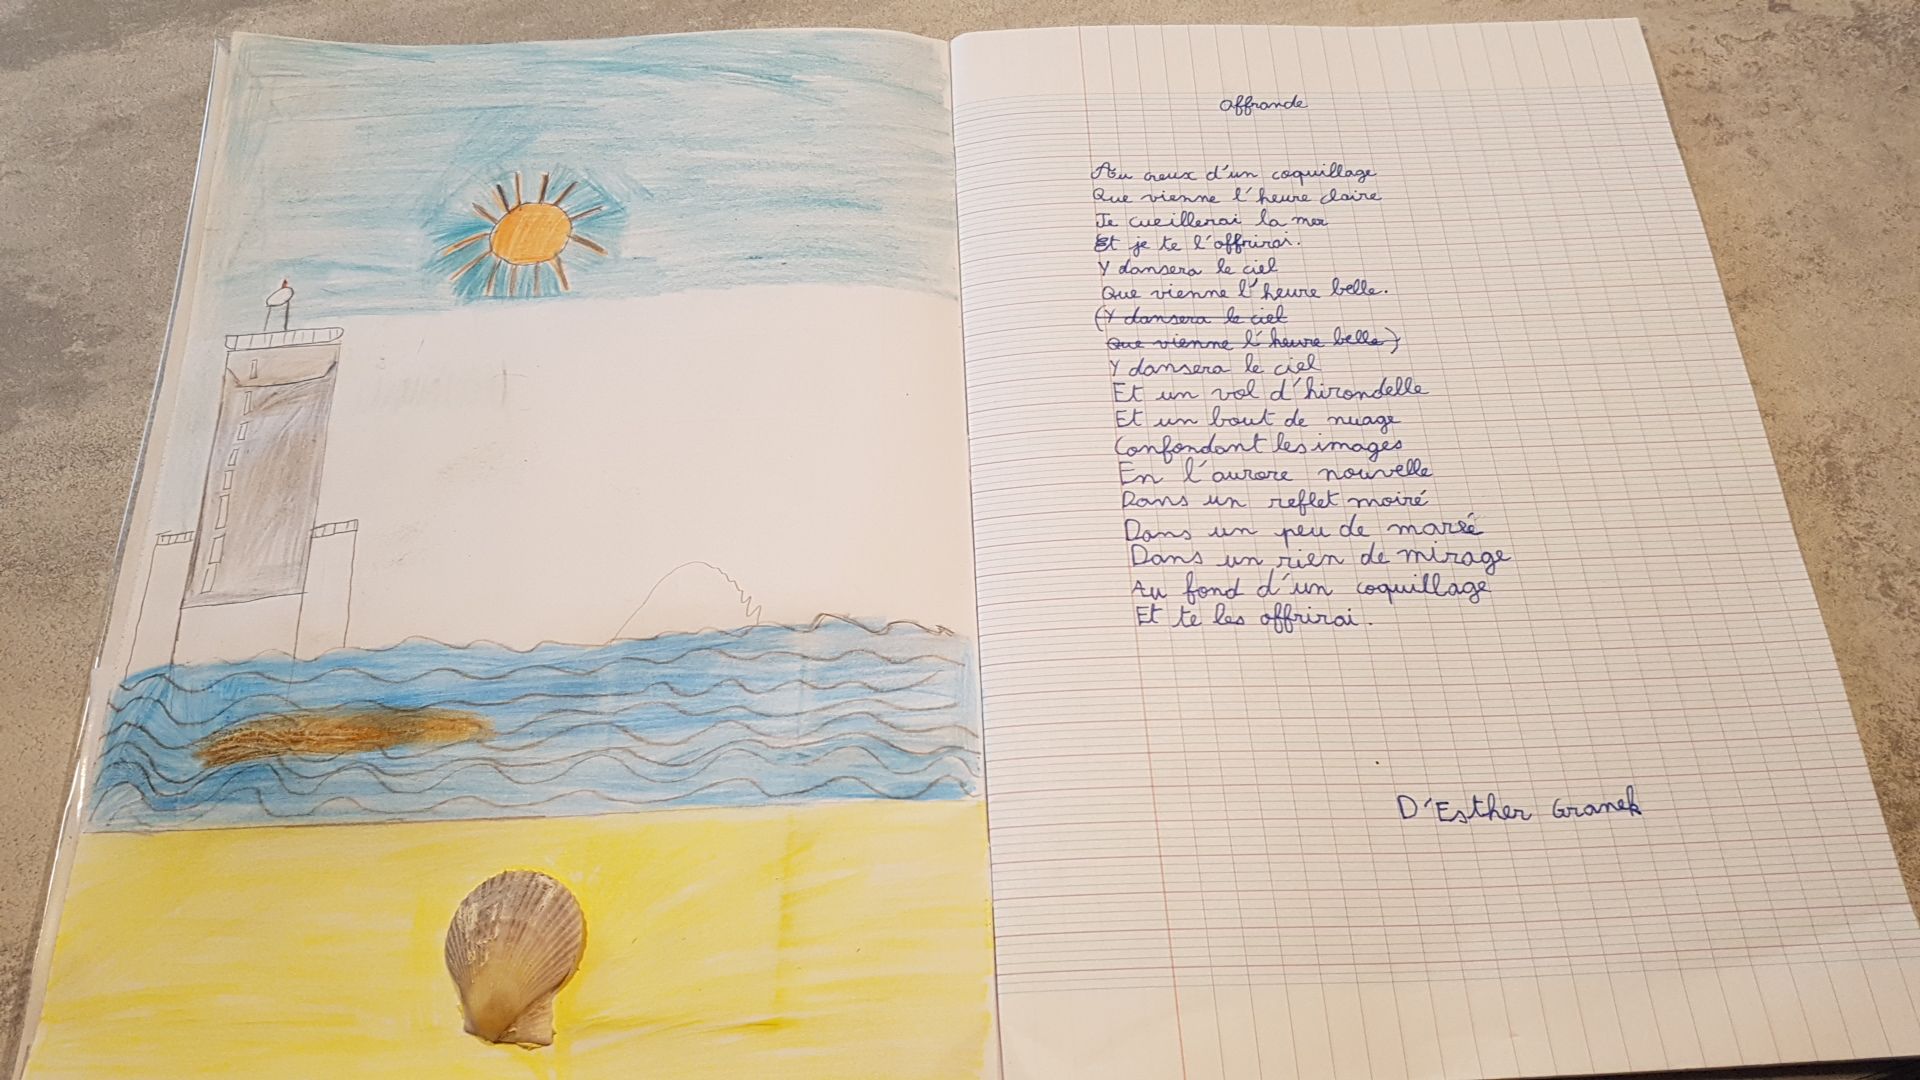 Offrande
Au creux d'un coquillage
Que vienne l'heure claire
Je cueillerai la mer
Et je te l'offrirai.
Y dansera le ciel
Que vienne l'heure belle.
(Y dansera le ciel
Que vienne l'heure belle)
Y dansera le ciel
Et un vol d'hirondelle
Et un bout de nuage
Confondant les images
En l'aurore nouvelle
Dans un reflet moiré
Dans un peu de marée
Dans un rien de mirage
Au fond d'un coquillage
Et te les offrirai.
D'Esther Granek